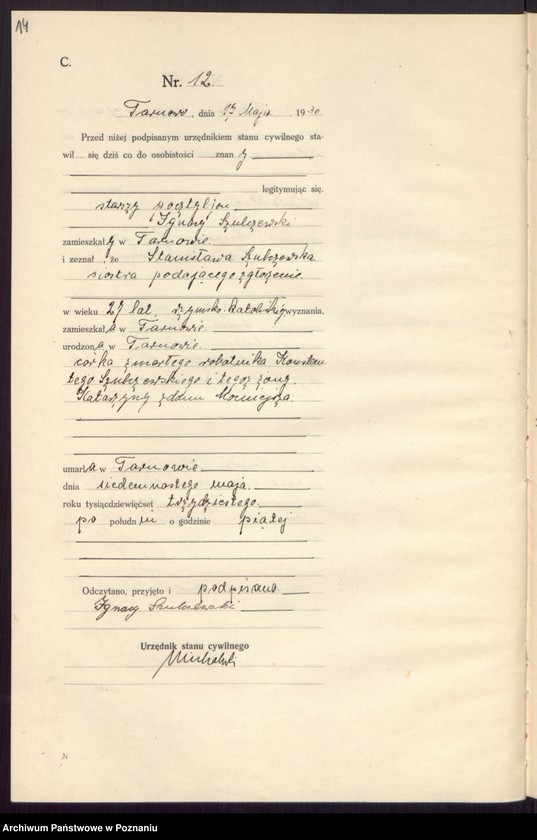 14
C.
Nr. 12.
Tarnowo, dnia 17 Maja 1930
Przed niżej podpisanym urzędnikiem stanu cywilnego sta-
wił się dziś co do osobistości znany
legitymując się.
starszy pocztyljon
Ignacy Szubczewski
zamieszkały w Tarnowie
i zeznał, że Stanisława Szubczewska
siostra podającego zgłoszenie
w wieku 27 lat, rzymsko-katolickiego wyznania,
zamieszkała w Tarnowie
urodzona w Tarnowie
córka zmarłego robotnika
tego Szubczewskiego i tegoż żony
Katarzyny z domu
umarła w Tarnowie
dnia siedemnastego maja
roku tysiącdziewięćset trzydziestego
po południu o godzinie piątej
Odczytano, przyjęto i podpisano
Ignacy Szubczewski
Urzędnik stanu cywilnego
Archiwum Państwowe w Poznaniu